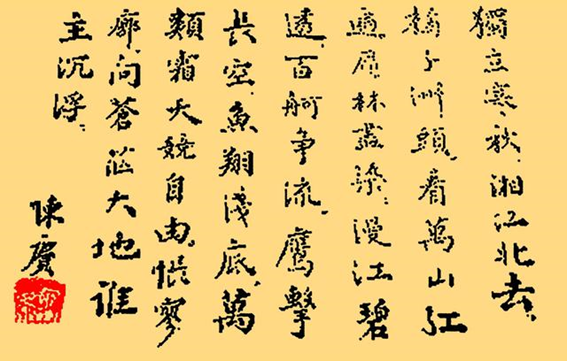 獨立寒秋、湘江北去、
橘子洲頭、看萬山紅
遍、層林盡染、漫江碧
透、百舸争流、鷹擊
長空、魚翔淺底、萬
類霜天競自由、悵寥
廓、問蒼茫大地誰
主沉浮、
陳賡